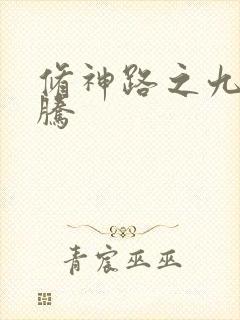 脩神路之九
騰
青宸巫巫